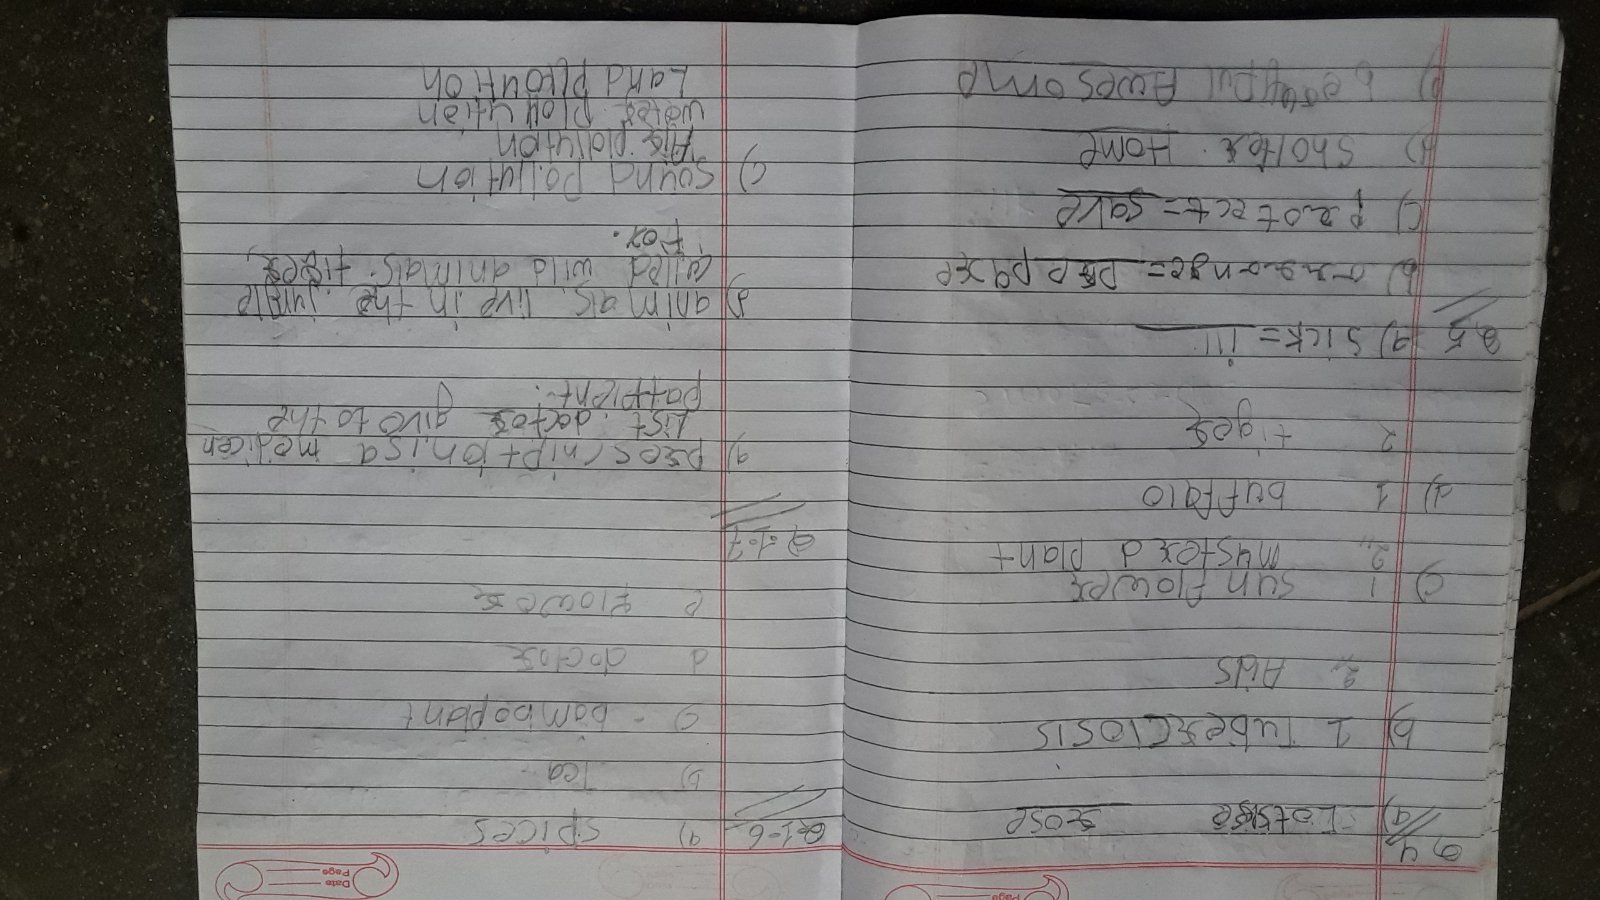 Q 4 a) Lotsise rose
b) 1 Tuberclosis
2 Aids
c) 1 sun flower
2 mustord plant
d) 1 buffalo
2 tiger
Q 5 a) sick = ill
b) arrange = prepqre
c) protect = save
d) Sholter Home
e) Awesome
Date
Page
Q.1-6 a) spices
b) Tea
c) - bamboplant
d doctor
e flower
Q.1-7
a) proscniption is a medicen
List doctor give to the
pattient.
b) animals live in the jungle
wild animals. tiger,
Fox.
c) sound pollution
Air plollution
water plollution
Land